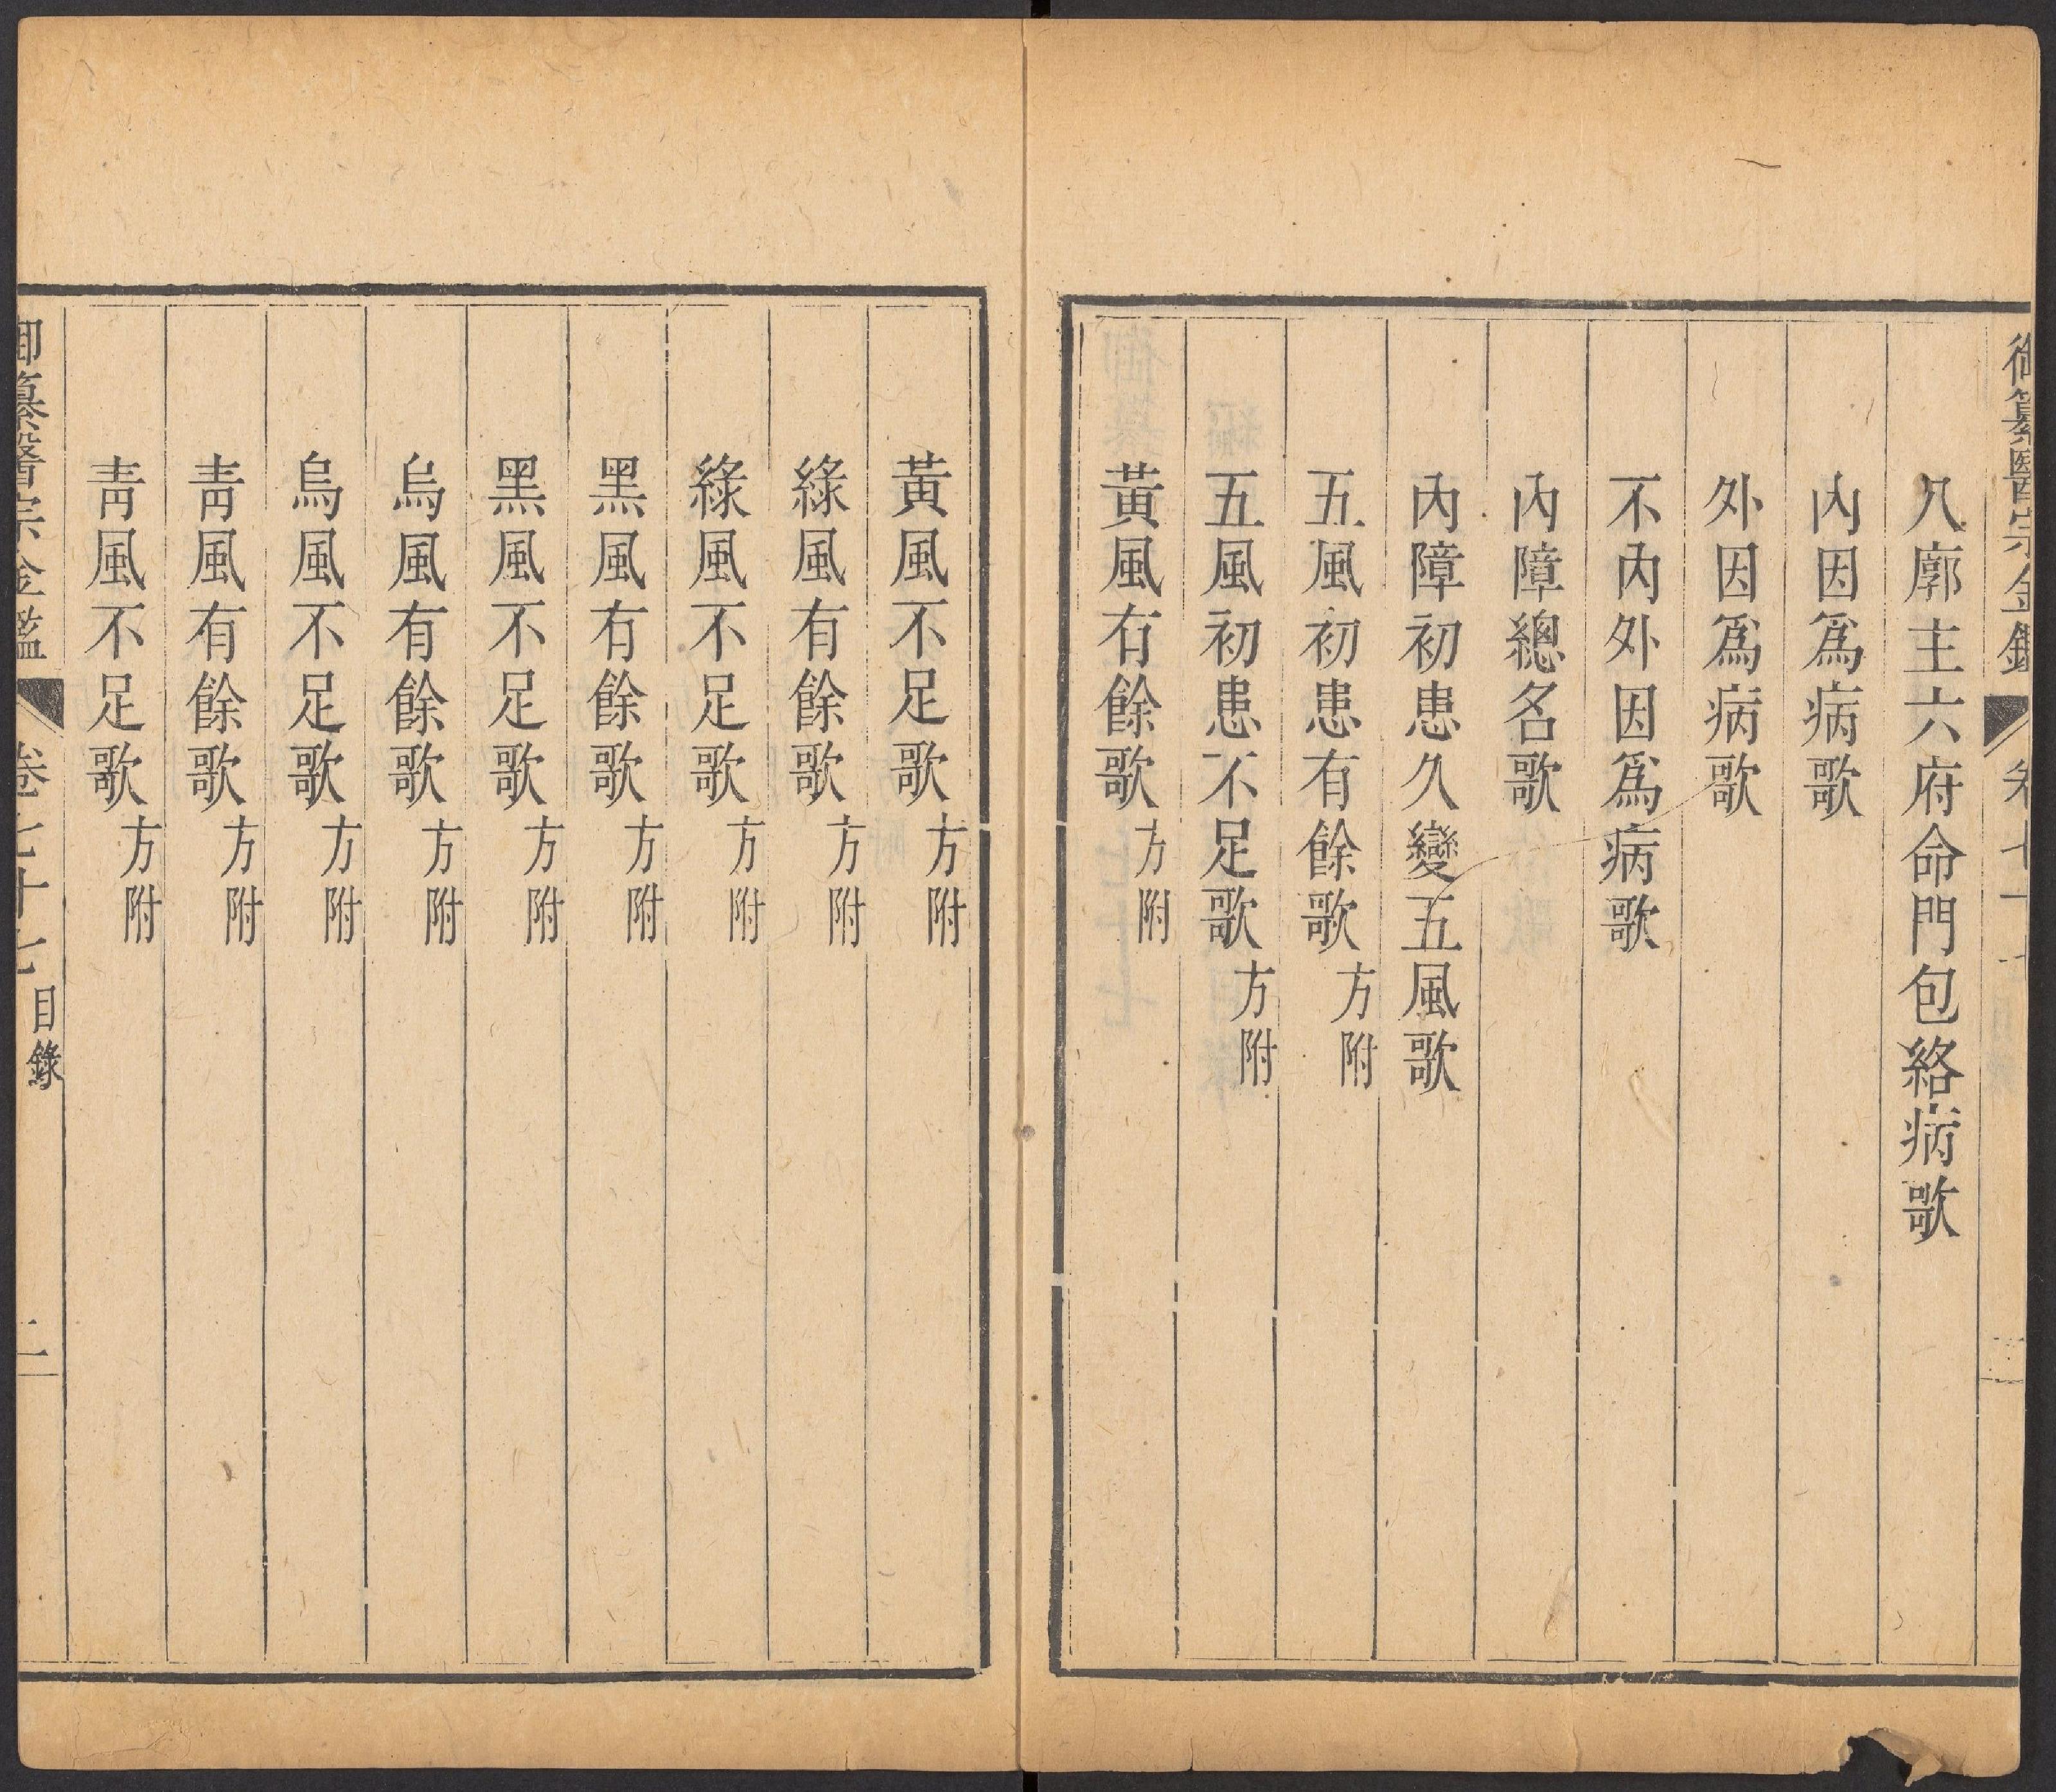 八廓主六府命門包絡病歌
內因爲病歌
外因爲病歌
不內外因爲病歌
內障總名歌
內障初患久變五風歌
五風初患有餘歌 方附
五風初患不足歌 方附
黃風有餘歌 方附
黃風不足歌 方附
綠風有餘歌 方附
綠風不足歌 方附
黑風有餘歌 方附
黑風不足歌 方附
烏風有餘歌 方附
烏風不足歌 方附
靑風有餘歌 方附
靑風不足歌 方附
御纂醫宗金鑑 卷七十七 目錄 二